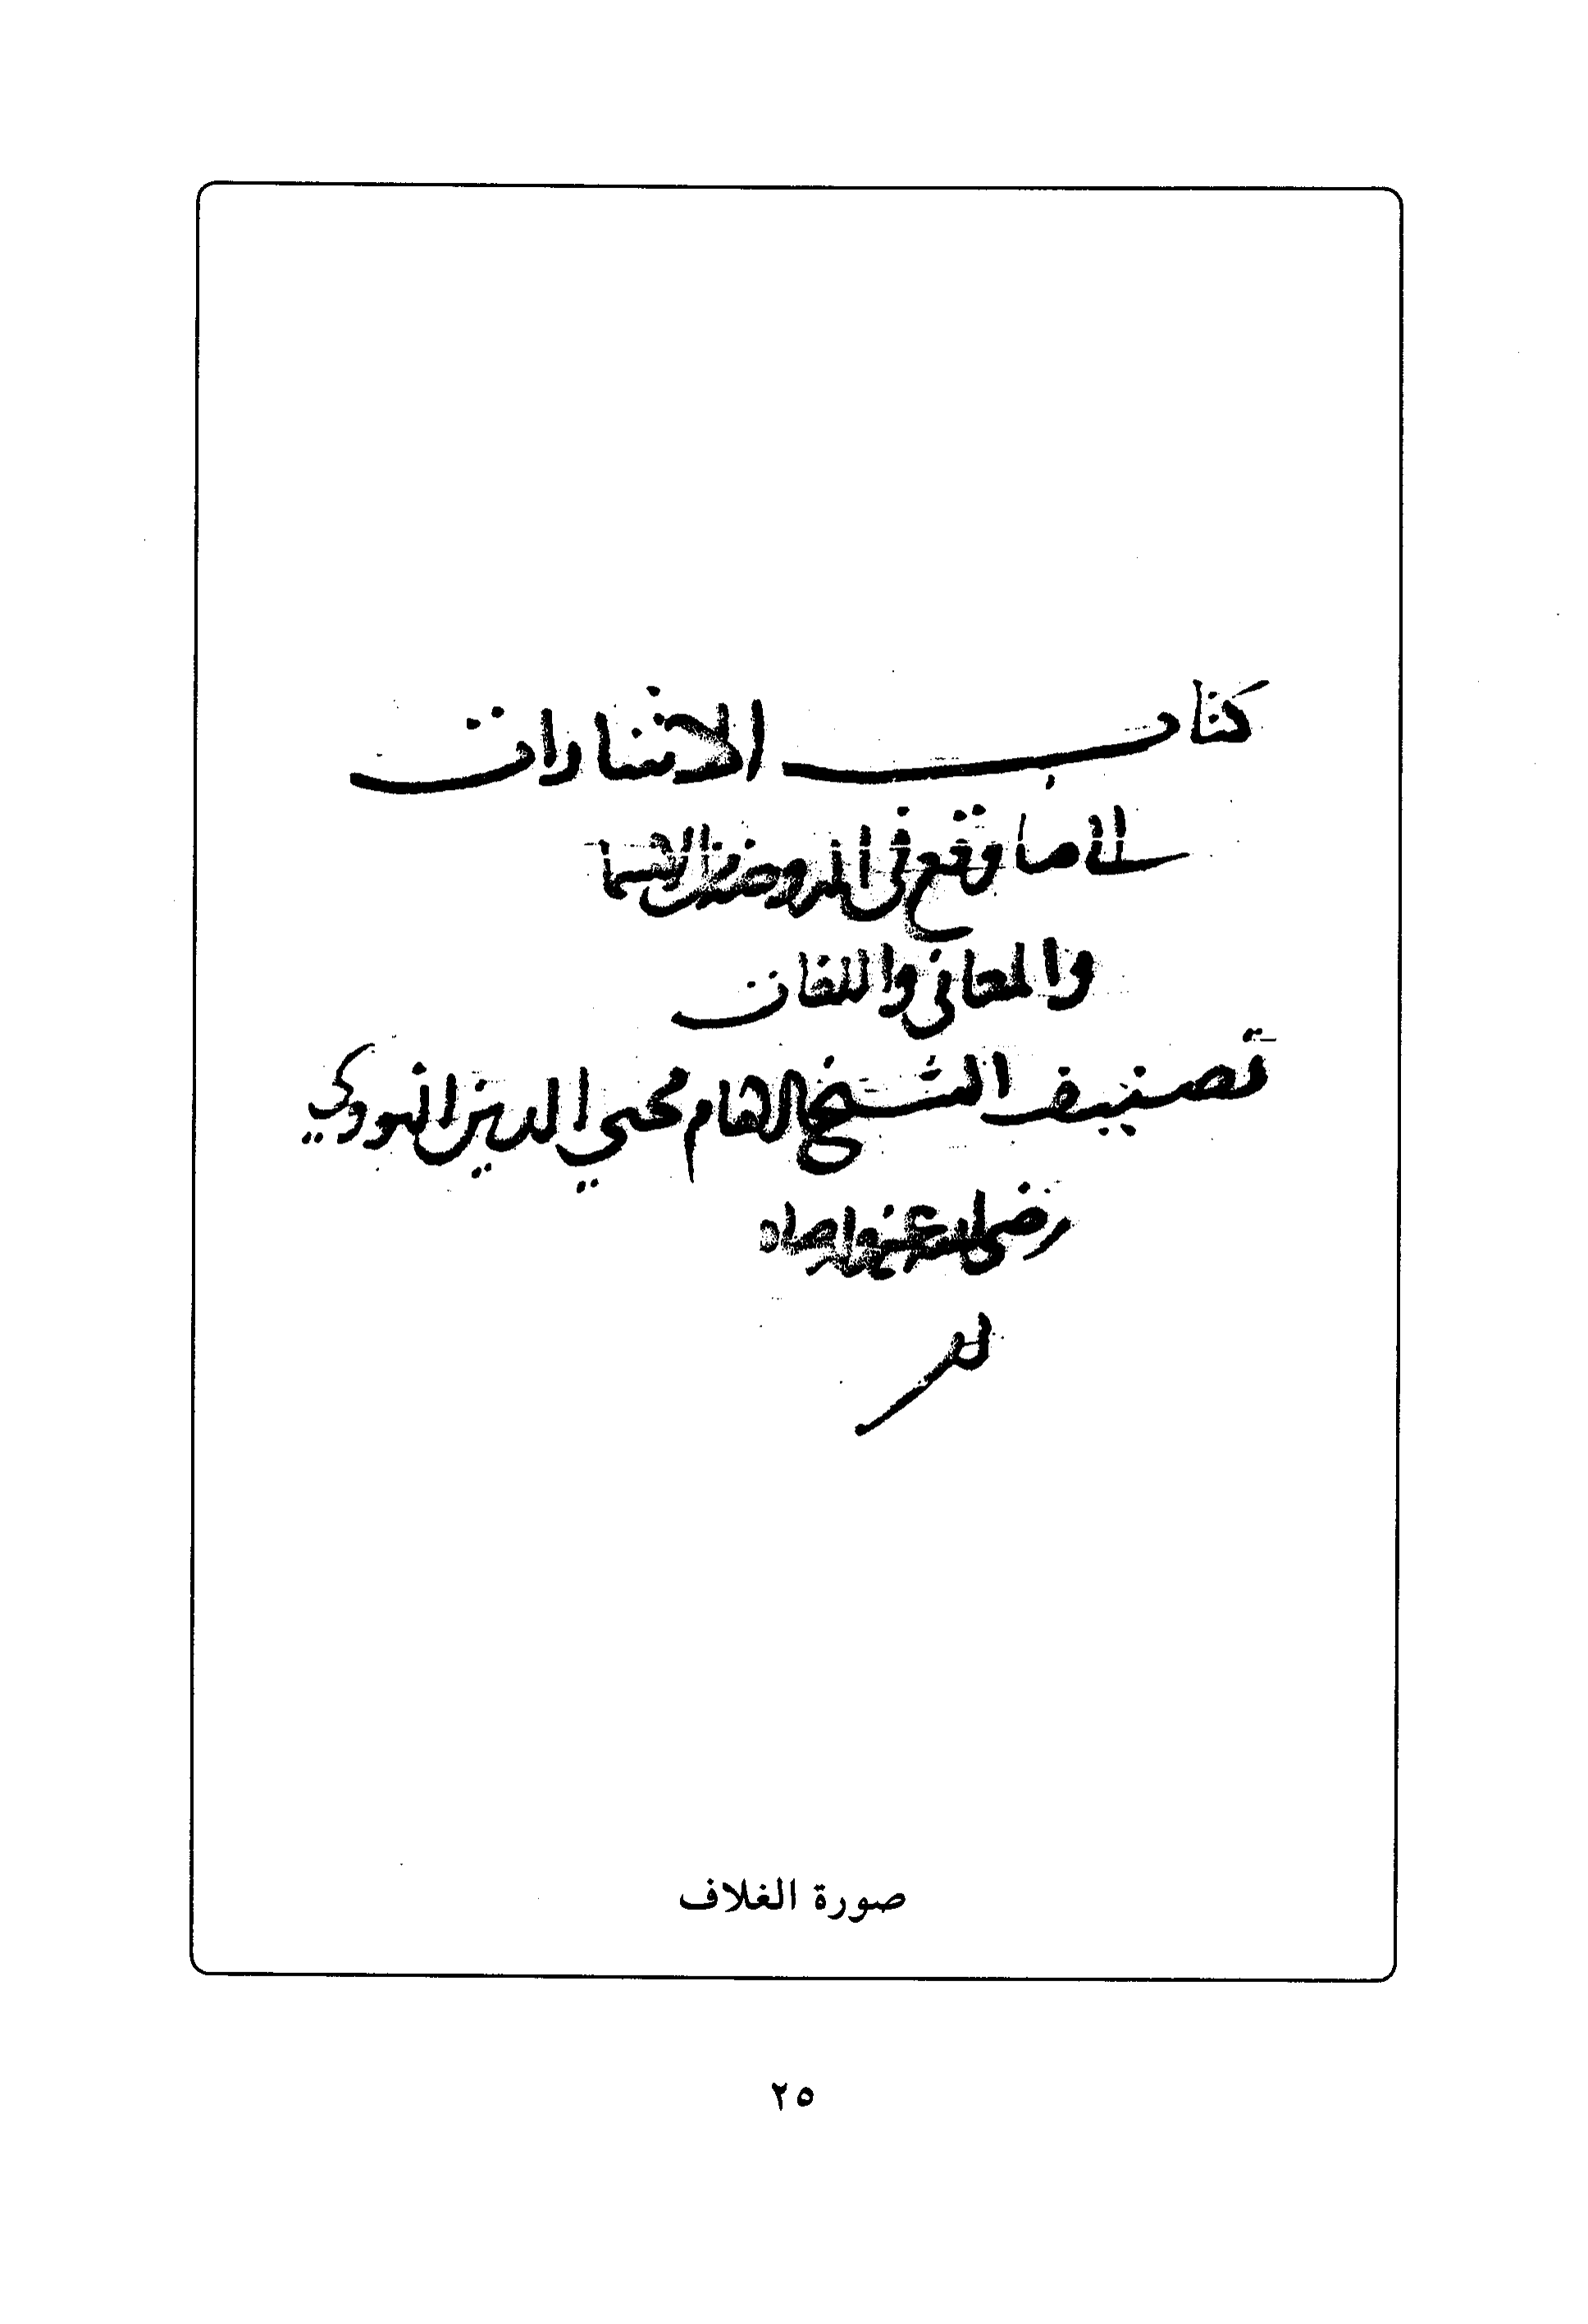 كتاب الاشارات
الى ما وقع في الروضة من الاسما
والمعاني واللغات
تصنيف الشيخ الامام محيي الدين النووي
رضي الله عنه وارضاه
صورة الغلاف
٢٥